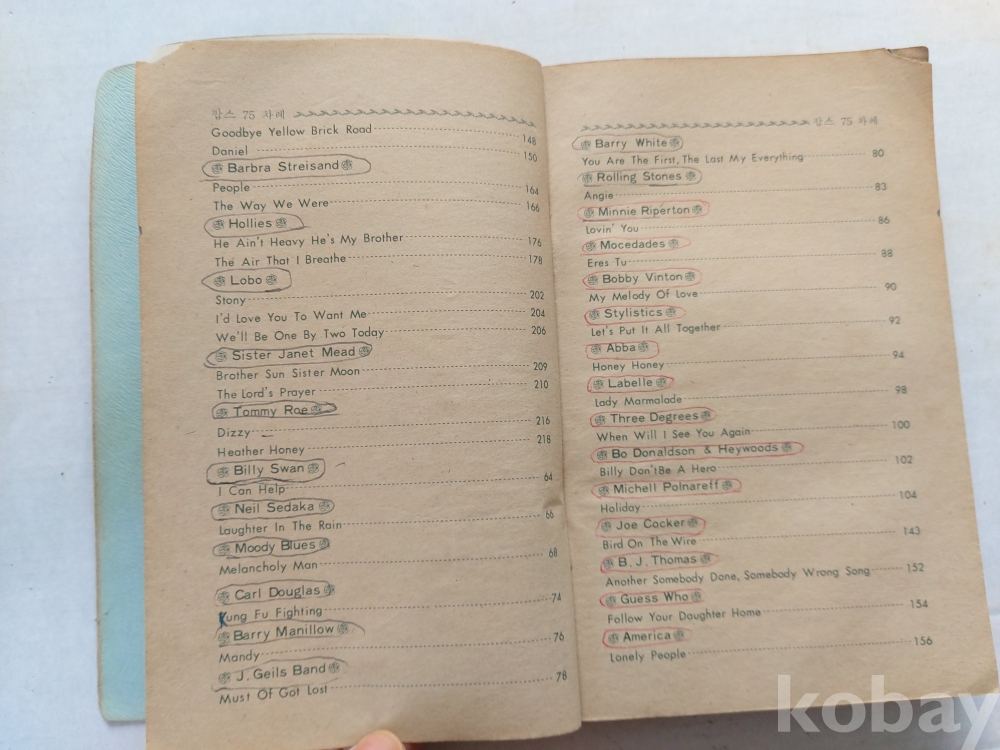 팝스 75 차례
Goodbye Yellow Brick Road 148
Daniel 150
Barbra Streisand
People 164
The Way We Were 166
Hollies
He Ain't Heavy He's My Brother 176
The Air That I Breathe 178
Lobo
Stony 202
I'd Love You To Want Me 204
We'll Be One By Two Today 206
Sister Janet Mead
Brother Sun Sister Moon 209
The Lord's Prayer 210
Tommy Roe
Dizzy 216
Heather Honey 218
Billy Swan
I Can Help 64
Neil Sedaka
Laughter In The Rain 66
Moody Blues
Melancholy Man 68
Carl Douglas
Kung Fu Fighting 74
Barry Manillow
Mandy 76
J. Geils Band
Must Of Got Lost 78
팝스 75 차례
Barry White
You Are The First, The Last My Everything 80
Rolling Stones
Angie 83
Minnie Riperton
Lovin' You 86
Mocedades
Eres Tu 88
Bobby Vinton
My Melody Of Love 90
Stylistics
Let's Put It All Together 92
Abba
Honey Honey 94
Labelle
Lady Marmalade 98
Three Degrees
When Will I See You Again 100
Bo Donaldson & Heywoods
Billy Don't8e A Hero 102
Michell Polnareff
Holiday 104
Joe Cocker
Bird On The Wire 143
B. J. Thomas
Another Somebody Done, Somebody Wrong Song 152
Guess Who
Follow Your Daughter Home 154
America
Lonely People 156
kobay